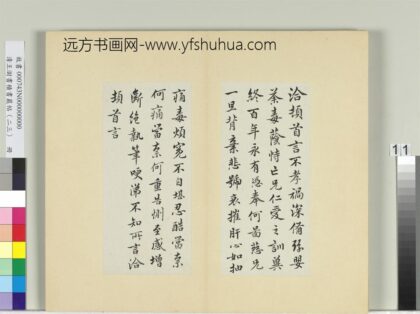 远方书画网-www.yfshuhua.com
洽頓首言不孝禍深備嬰
荼毒蔭恃亡兄仁愛之訓冀
終百年永有憑奉何圖慈兄
一旦背棄悲號哀摧肝心如抽
痛毒煩冤不自堪忍酷當奈
何痛當奈何重告惻至感增
斷絕執筆哽涕不知所言洽
頓首言
11